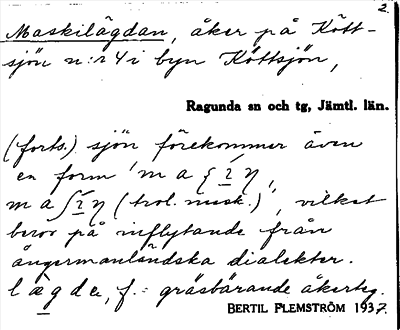 2.
Maskilägdan, åker på Kött-
sjön n:r 4 i byn Köttsjön,
Ragunda sn och tg, Jämtl. län.
(forts.) sjön förekommer även
en form
(trol. mask.), vilket
beror på inflytande från
ångermanländska dialekter.
lägde, f.: gräsbärande åkerteg.
BERTIL FLEMSTRÖM 1937.